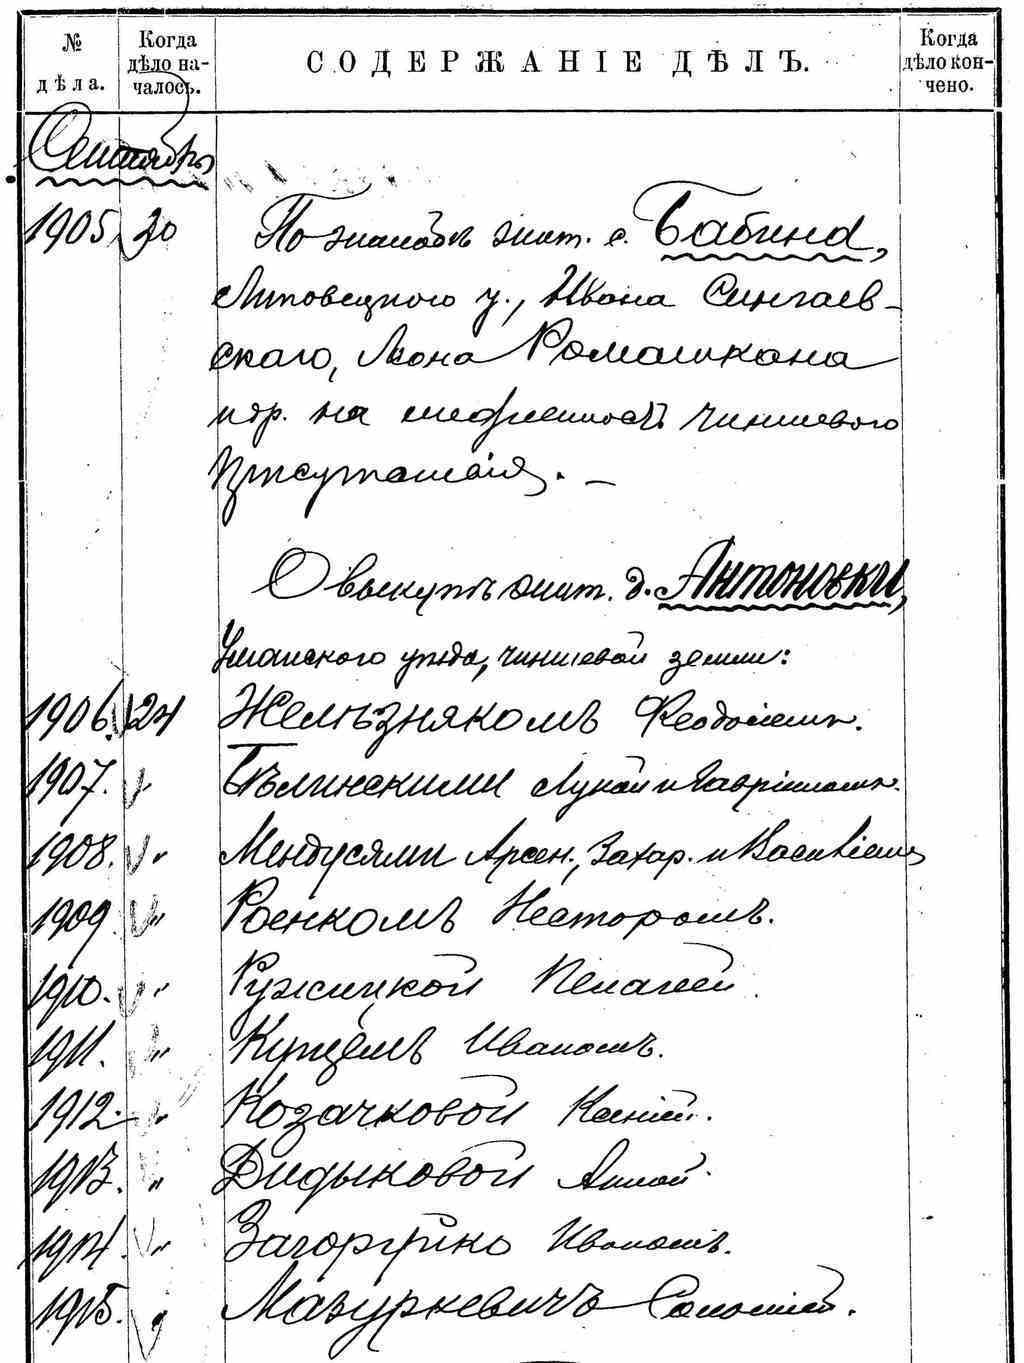 № дѣла.
Когда дѣло началось.
СОДЕРЖАНІЕ ДѢЛЪ.
Когда дѣло кончено.
Сентябрь
1905 20 По жалобѣ жит. с. Бабина,
Липовецкого у., Ивана Сингаев-
скаго, Леона Ромашкана
пр. на медленность чиншевого
Присутствія. —
О выкупѣ жит. д. Антоновки,
Уманского уѣзда, чиншевой земли:
1906. 24 Желѣзнякомъ Феодосіемъ.
1907. " Бѣлинскими Лукой и Гавріиломъ.
1908. " Мендусями Арсен., Захар. и Василіемъ
1909 " Роенкомъ Несторомъ.
1910. " Ружицкой Пелагеей.
1911. " Куцемъ Иваномъ.
1912. " Козачковой Ксеніей.
1913. " Дидыковой Анной.
1914. " Загоруйко Иваномъ.
1915. " Мазуркевичъ Соломіей.